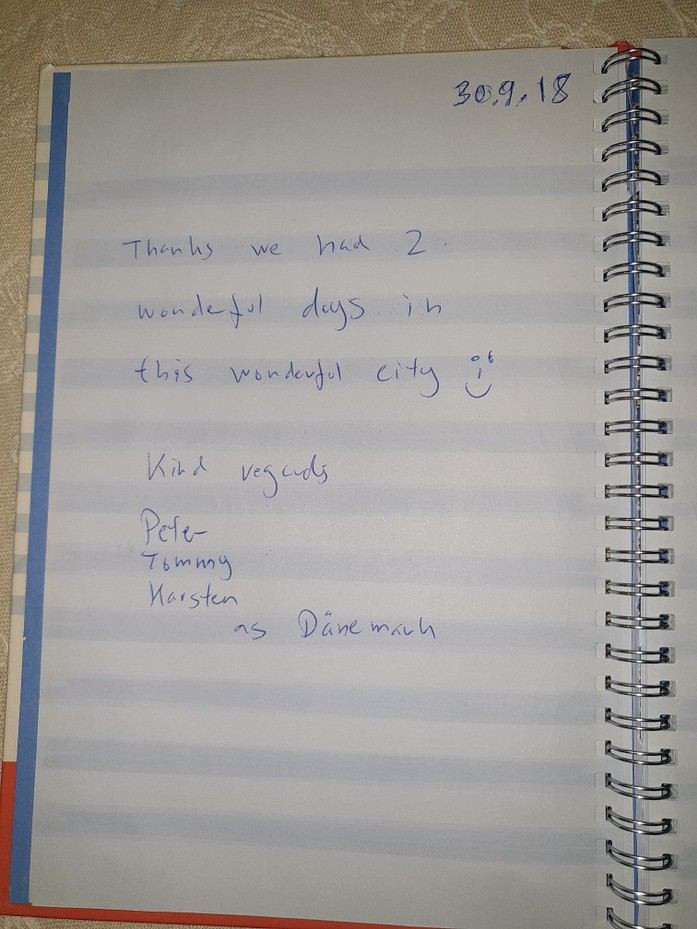 30.9.18
Thanks we had 2
wonderful days in
this wonderful city
Kind regards
Peter
Tommy
Karsten
as Dänemark